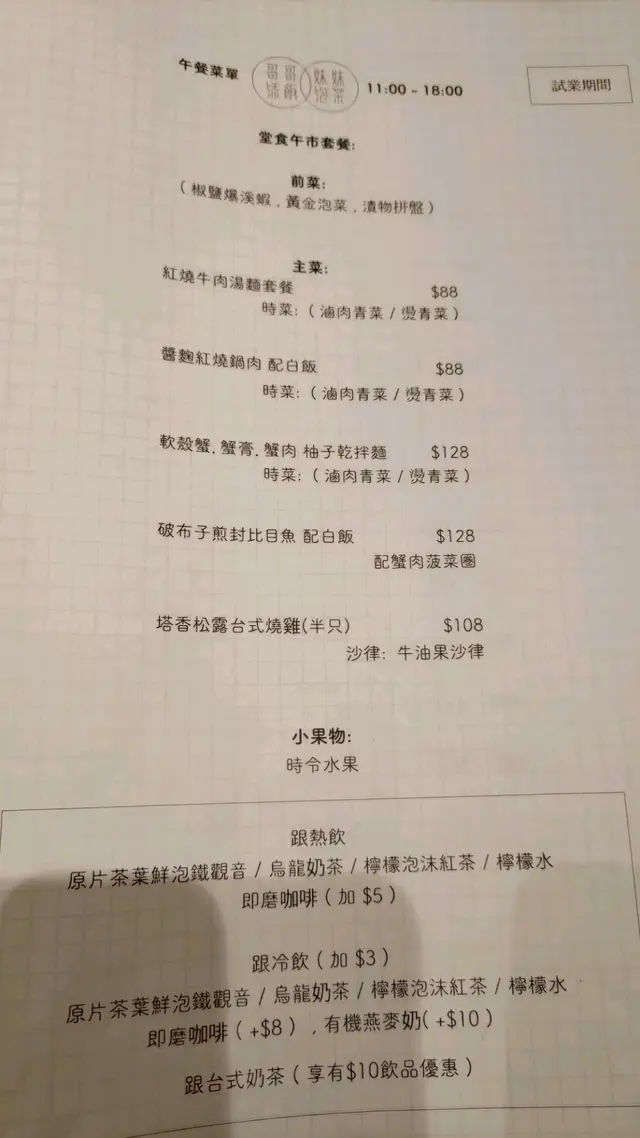 午餐菜單
哥哥 妹妹
泡茶
11:00 - 18:00
試業期間
堂食午市套餐:
前菜:
( 椒鹽爆溪蝦 , 黃金泡菜 , 漬物拼盤 )
主菜:
紅燒牛肉湯麵套餐 $88
時菜: ( 滷肉青菜 / 燙青菜 )
醬麴紅燒鍋肉 配白飯 $88
時菜: ( 滷肉青菜 / 燙青菜 )
軟殼蟹. 蟹膏. 蟹肉 柚子乾拌麵 $128
時菜: ( 滷肉青菜 / 燙青菜 )
破布子煎封比目魚 配白飯 $128
配蟹肉菠菜圈
塔香松露台式燒雞(半只) $108
沙律: 牛油果沙律
小果物:
時令水果
跟熱飲
原片茶葉鮮泡鐵觀音 / 烏龍奶茶 / 檸檬泡沫紅茶 / 檸檬水
即磨咖啡 ( 加 $5 )
跟冷飲 ( 加 $3 )
原片茶葉鮮泡鐵觀音 / 烏龍奶茶 / 檸檬泡沫紅茶 / 檸檬水
即磨咖啡 ( +$8 ) , 有機燕麥奶( +$10 )
跟台式奶茶 ( 享有$10飲品優惠 )